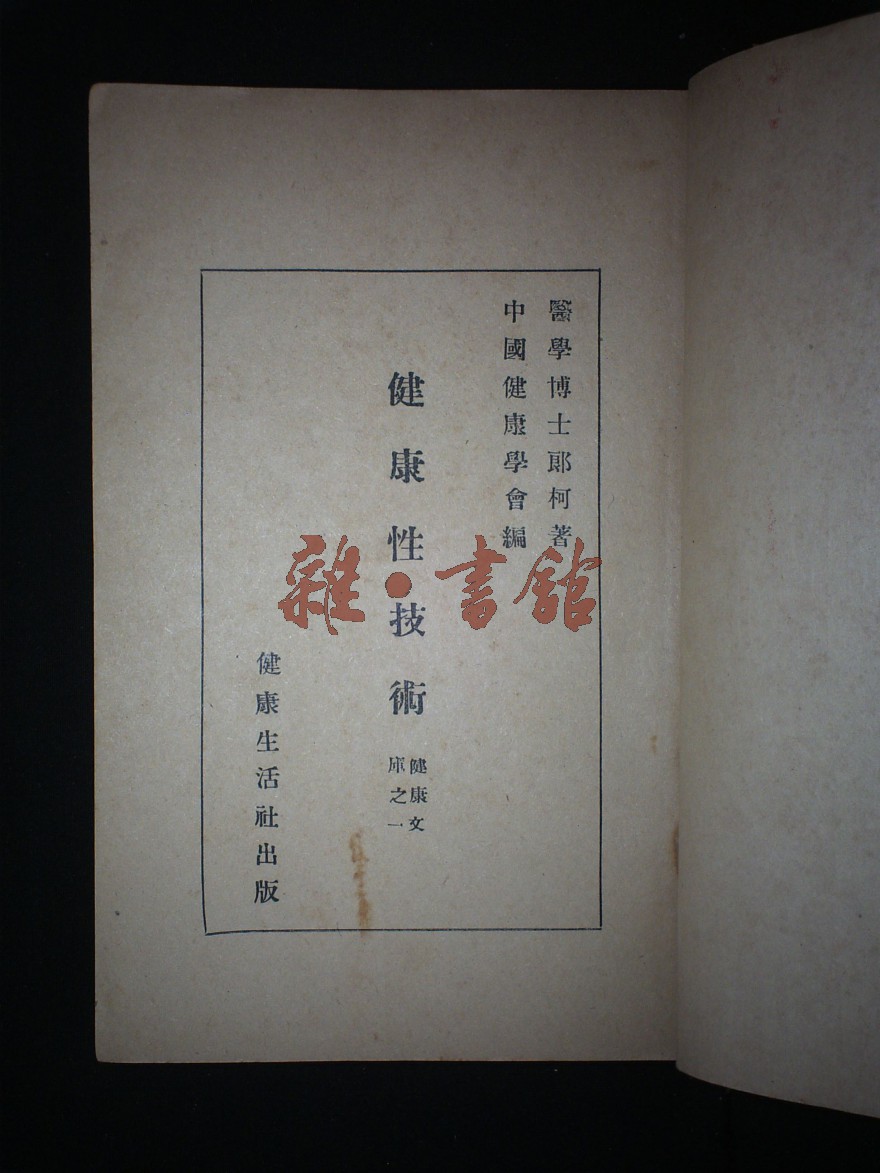 醫學博士郎柯著
中國健康學會編
健康性技術
健康文
庫之一
健康生活社出版
雜·書舘